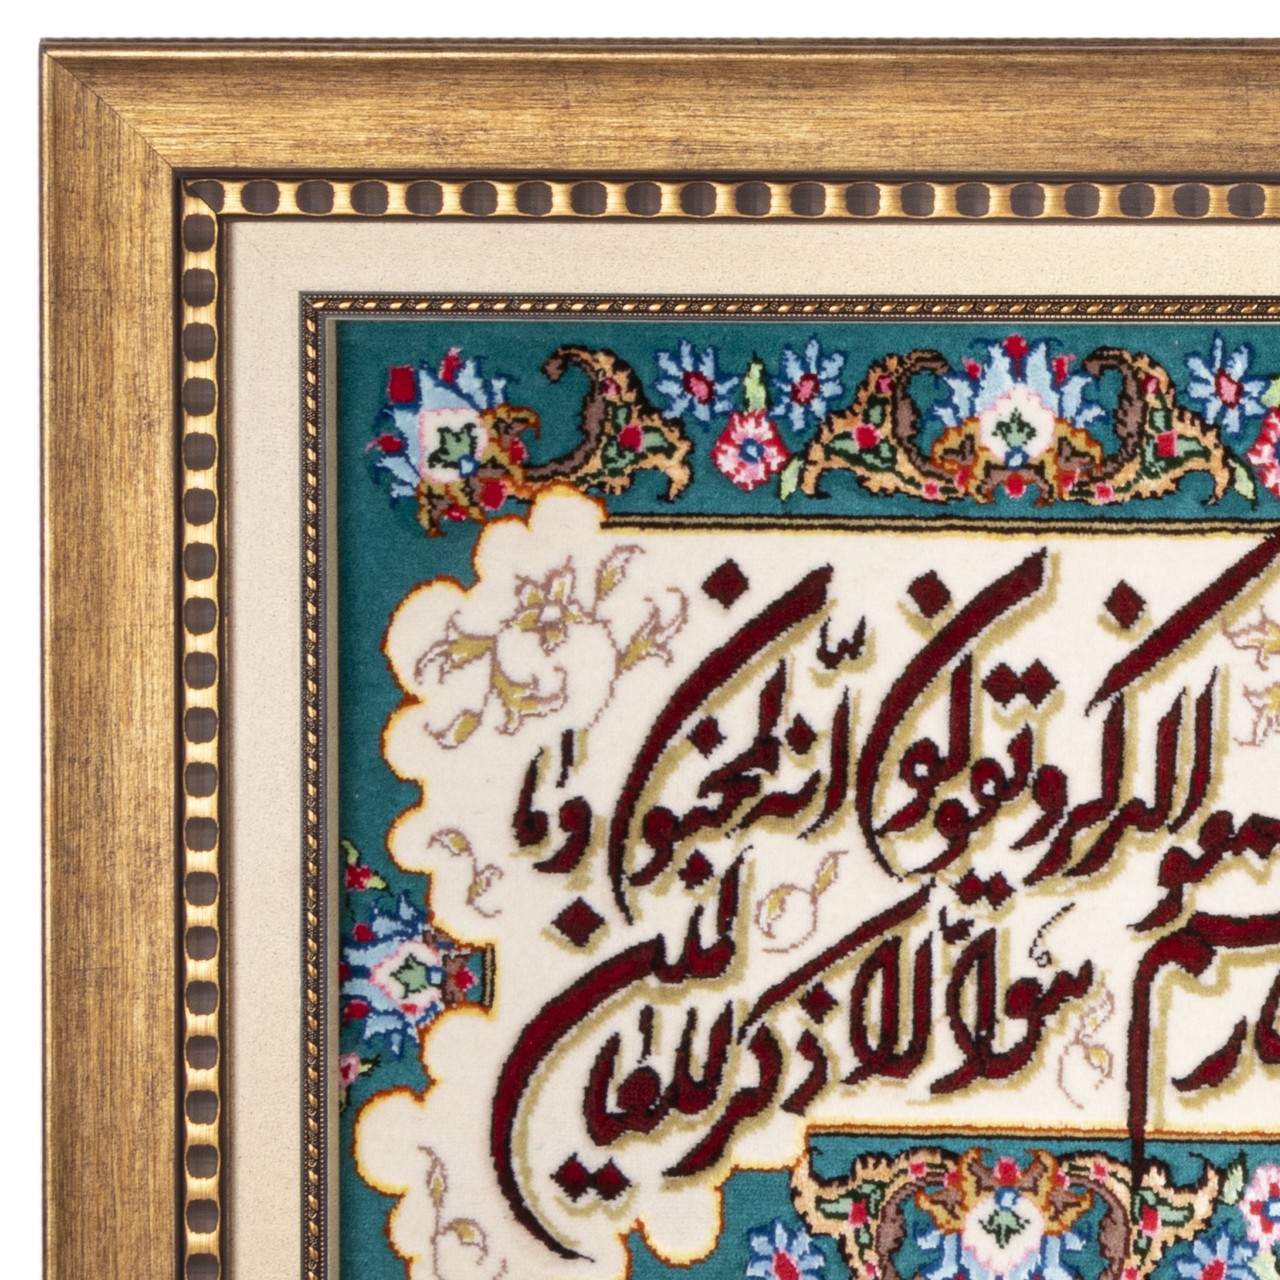 الذكر و يقولون انه لمجنون و ما
هو الا ذكر للعالمين